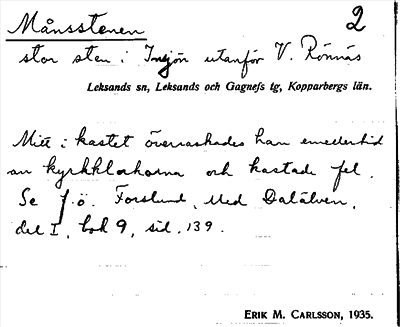 Månsstenen 2
stor sten i Insjön utanför V. Rönnäs
Leksands sn, Leksands och Gagnefs tg, Kopparbergs län.
Mitt i kastet överraskades han emellertid
av kyrkklockorna och kastade fel.
Se f.ö. Forslund, Med Dalälven,
del I, bok 9, sid. 139.
ERIK M. CARLSSON, 1935.